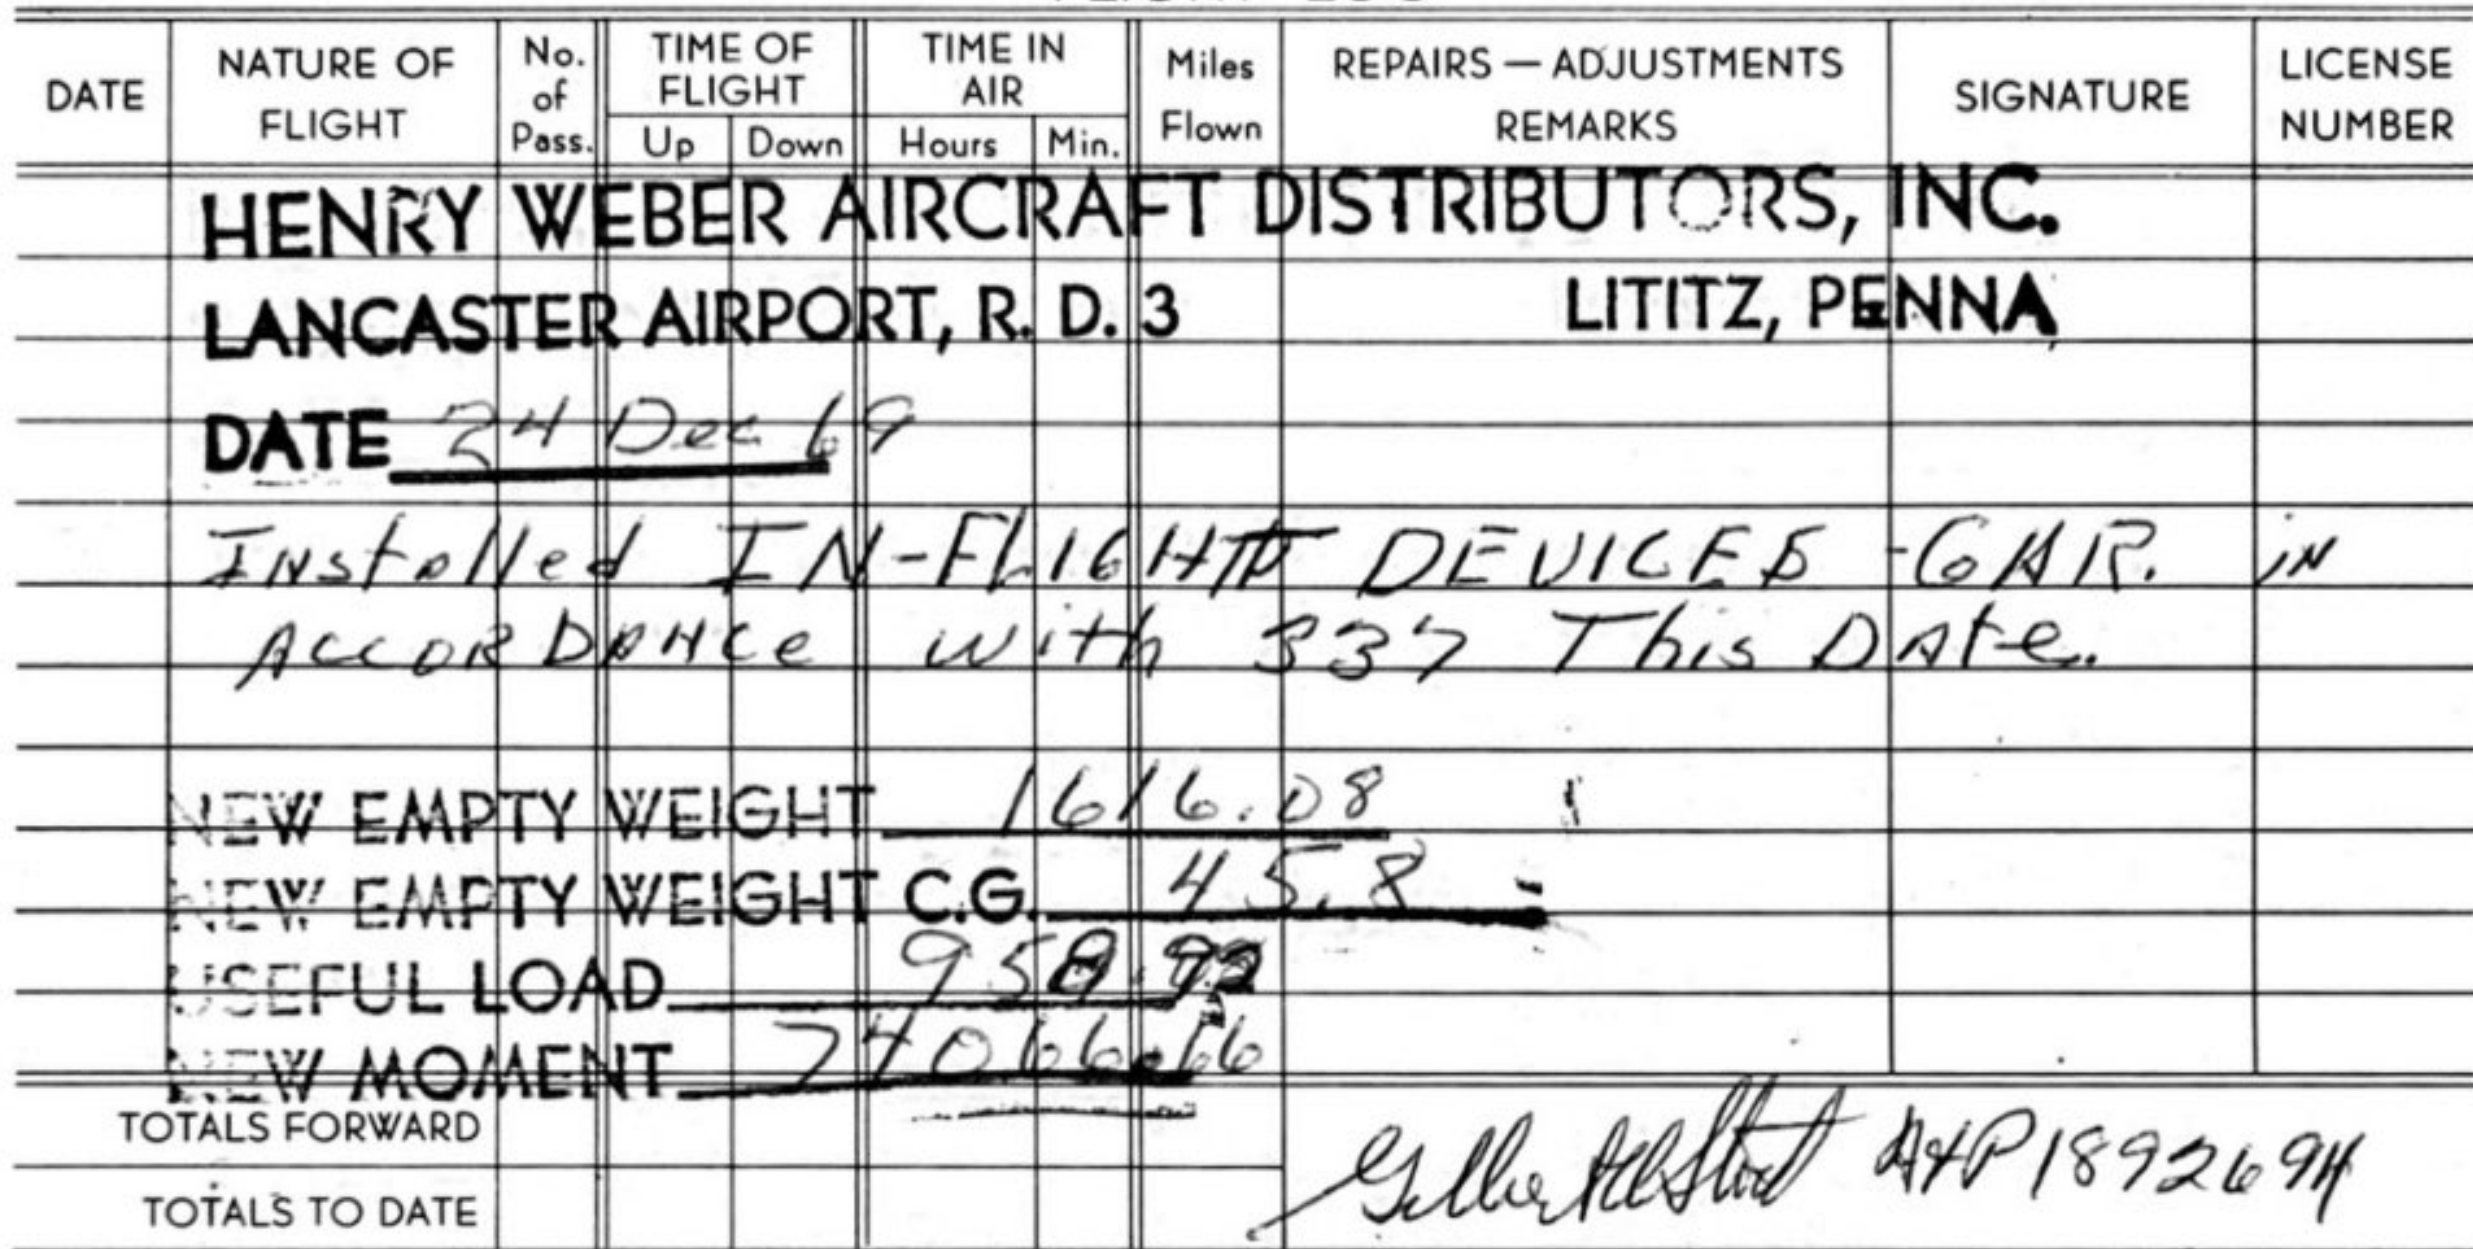 DATE NATURE OF FLIGHT No. of Pass. TIME OF FLIGHT Up Down TIME IN AIR Hours Min. Miles Flown REPAIRS — ADJUSTMENTS REMARKS SIGNATURE LICENSE NUMBER
HENRY WEBER AIRCRAFT DISTRIBUTORS, INC.
LANCASTER AIRPORT, R. D. 3 LITITZ, PENNA.
DATE 24 Dec 69
Installed IN-FLIGHT DEVICES - GAR. IN
ACCORDANCE with 337 This Date.
NEW EMPTY WEIGHT 1616.08
NEW EMPTY WEIGHT C.G. 45.8
USEFUL LOAD 958.92
NEW MOMENT 74066.66
TOTALS FORWARD
A&P 1892694
TOTALS TO DATE